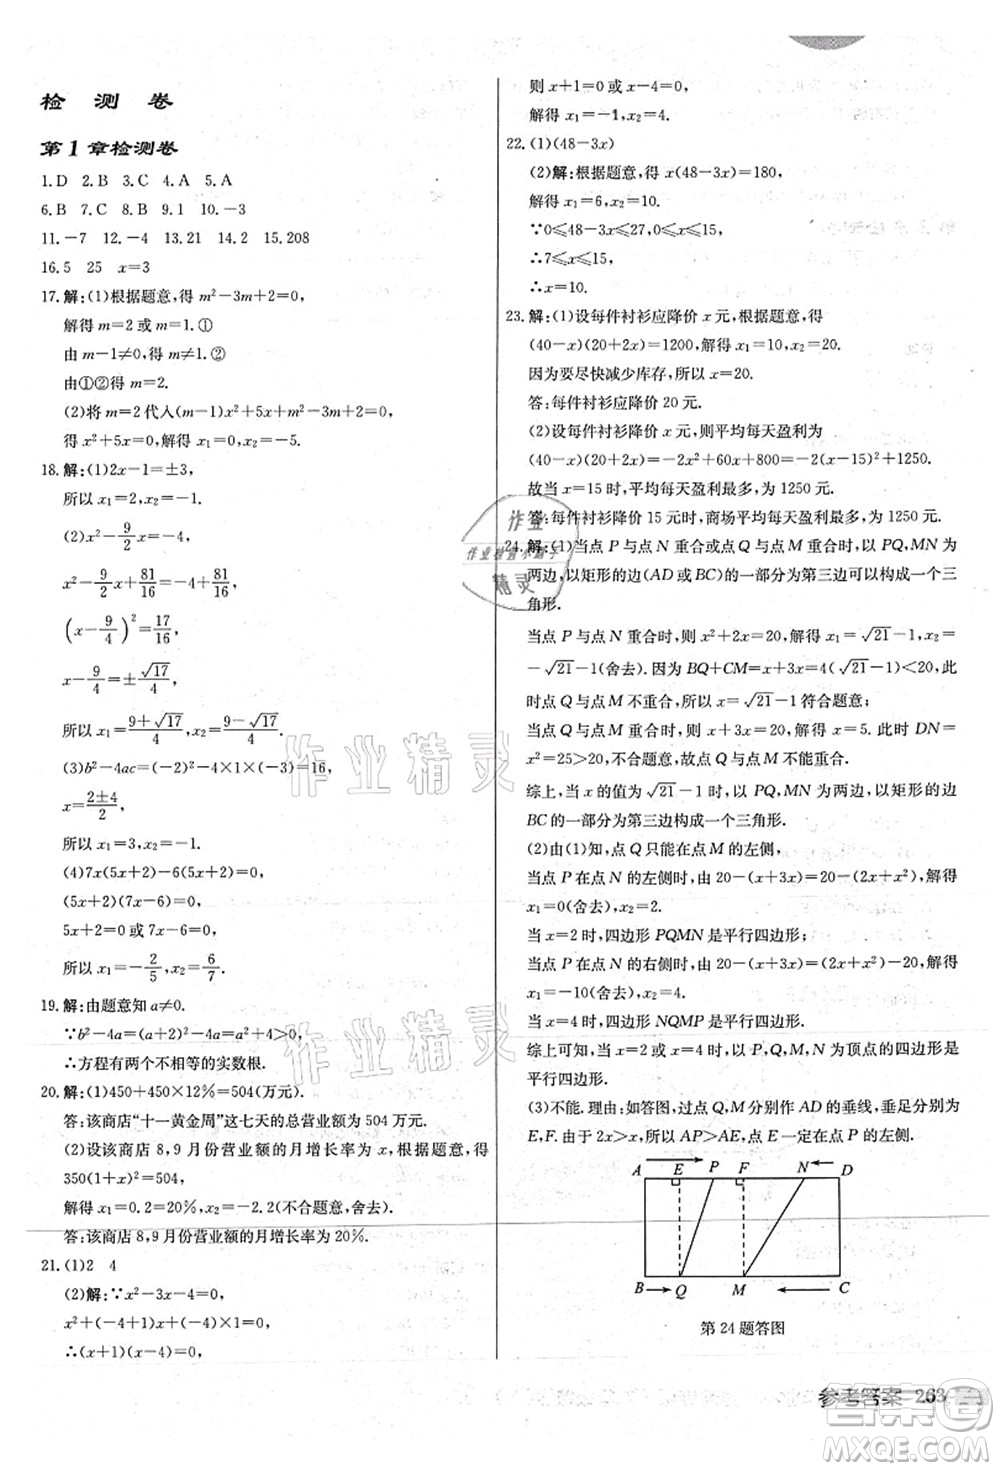 检 测 卷
第1章检测卷
1.D 2.B 3.C 4.A 5.A
6.B 7.C 8.B 9.1 10.-3
11.-7 12.-4 13.21 14.2 15.208
16.5 25 x=3
17.解:(1)根据题意,得 m²-3m+2=0,
解得 m=2 或 m=1.①
由 m-1≠0,得 m≠1.②
由①②得 m=2.
(2)将 m=2 代入(m-1)x²+5x+m²-3m+2=0,
得 x²+5x=0,解得 x₁=0,x₂=-5.
18.解:(1)2x-1=±3,
所以 x₁=2,x₂=-1.
(2)x²-9/2x=-4,
x²-9/2x+81/16=-4+81/16,
(x-9/4)²=17/16,
x-9/4=±√17/4,
所以 x₁=(9+√17)/4,x₂=(9-√17)/4.
(3)b²-4ac=(-2)²-4×1×(-3)=16,
x=(2±4)/2,
所以 x₁=3,x₂=-1.
(4)7x(5x+2)-6(5x+2)=0,
(5x+2)(7x-6)=0,
5x+2=0 或 7x-6=0,
所以 x₁=-2/5,x₂=6/7.
19.解:由题意知 a≠0.
∵b²-4a=(a+2)²-4a=a²+4>0,
∴方程有两个不相等的实数根.
20.解:(1)450+450×12%=504(万元).
答:该商店“十一黄金周”这七天的总营业额为 504 万元.
(2)设该商店 8,9 月份营业额的月增长率为 x,依题意,得
350(1+x)²=504,
解得 x₁=0.2=20%,x₂=-2.2(不合题意,舍去).
答:该商店 8,9 月份营业额的月增长率为 20%.
21.(1)2 4
(2)解:∵x²-3x-4=0,
x²+(-4+1)x+(-4)×1=0,
∴(x+1)(x-4)=0,
则 x+1=0 或 x-4=0,
解得 x₁=-1,x₂=4.
22.(1)(48-3x)
(2)解:根据题意,得 x(48-3x)=180,
解得 x₁=6,x₂=10.
∵0≤48-3x≤27,0≤x≤15,
∴7≤x≤15,
∴x=10.
23.解:(1)设每件衬衫应降价 x 元,根据题意,得
(40-x)(20+2x)=1200,解得 x₁=10,x₂=20.
因为要尽快减少库存,所以 x=20.
答:每件衬衫应降价 20 元.
(2)设每件衬衫降价 x 元,则平均每天盈利为
(40-x)(20+2x)=-2x²+60x+800=-2(x-15)²+1250.
故当 x=15 时,平均每天盈利最多,为 1250 元.
答:每件衬衫降价 15 元时,商场平均每天盈利最多,为 1250 元.
24.解:(1)当点 P 与点 N 重合或点 Q 与点 M 重合时,以 PQ,MN 为
两边,以矩形的边(AD 或 BC)的一部分为第三边可以构成一个三
角形.
当点 P 与点 N 重合时,则 x²+2x=20,解得 x₁=√21-1,x₂=
-√21-1(舍去). 因为 BQ+CM=x+3x=4(√21-1)<20,此
时点 Q 与点 M 不重合,所以 x=√21-1 符合题意;
当点 Q 与点 M 重合时,则 x+3x=20,解得 x=5.此时 DN=
x²=25>20,不合题意,故点 Q 与点 M 不能重合.
综上,当 x 的值为√21-1 时,以 PQ,MN 为两边,以矩形的边
BC 的一部分为第三边构成一个三角形.
(2)由(1)知,点 Q 只能在点 M 的左侧,
当点 P 在点 N 的左侧时,由 20-(x+3x)=20-(2x+x²),解得
x₁=0(舍去),x₂=2.
当 x=2 时,四边形 PQMN 是平行四边形;
当点 P 在点 N 的右侧时,由 20-(x+3x)=(2x+x²)-20,解得
x₁=-10(舍去),x₂=4.
当 x=4 时,四边形 NQMP 是平行四边形.
综上可知,当 x=2 或 x=4 时,以 P,Q,M,N 为顶点的四边形是
平行四边形.
(3)不能.理由:如答图,过点 Q,M 分别作 AD 的垂线,垂足分别为
E,F.由于 2x>x,所以 AP>AE,点 E 一定在点 P 的左侧.
A E P F N D
B Q M C
第 24 题答图
参考答案 263
作业
作业检查小助手
精灵
作业精灵
作业精灵
答案圈
MXQE.COM